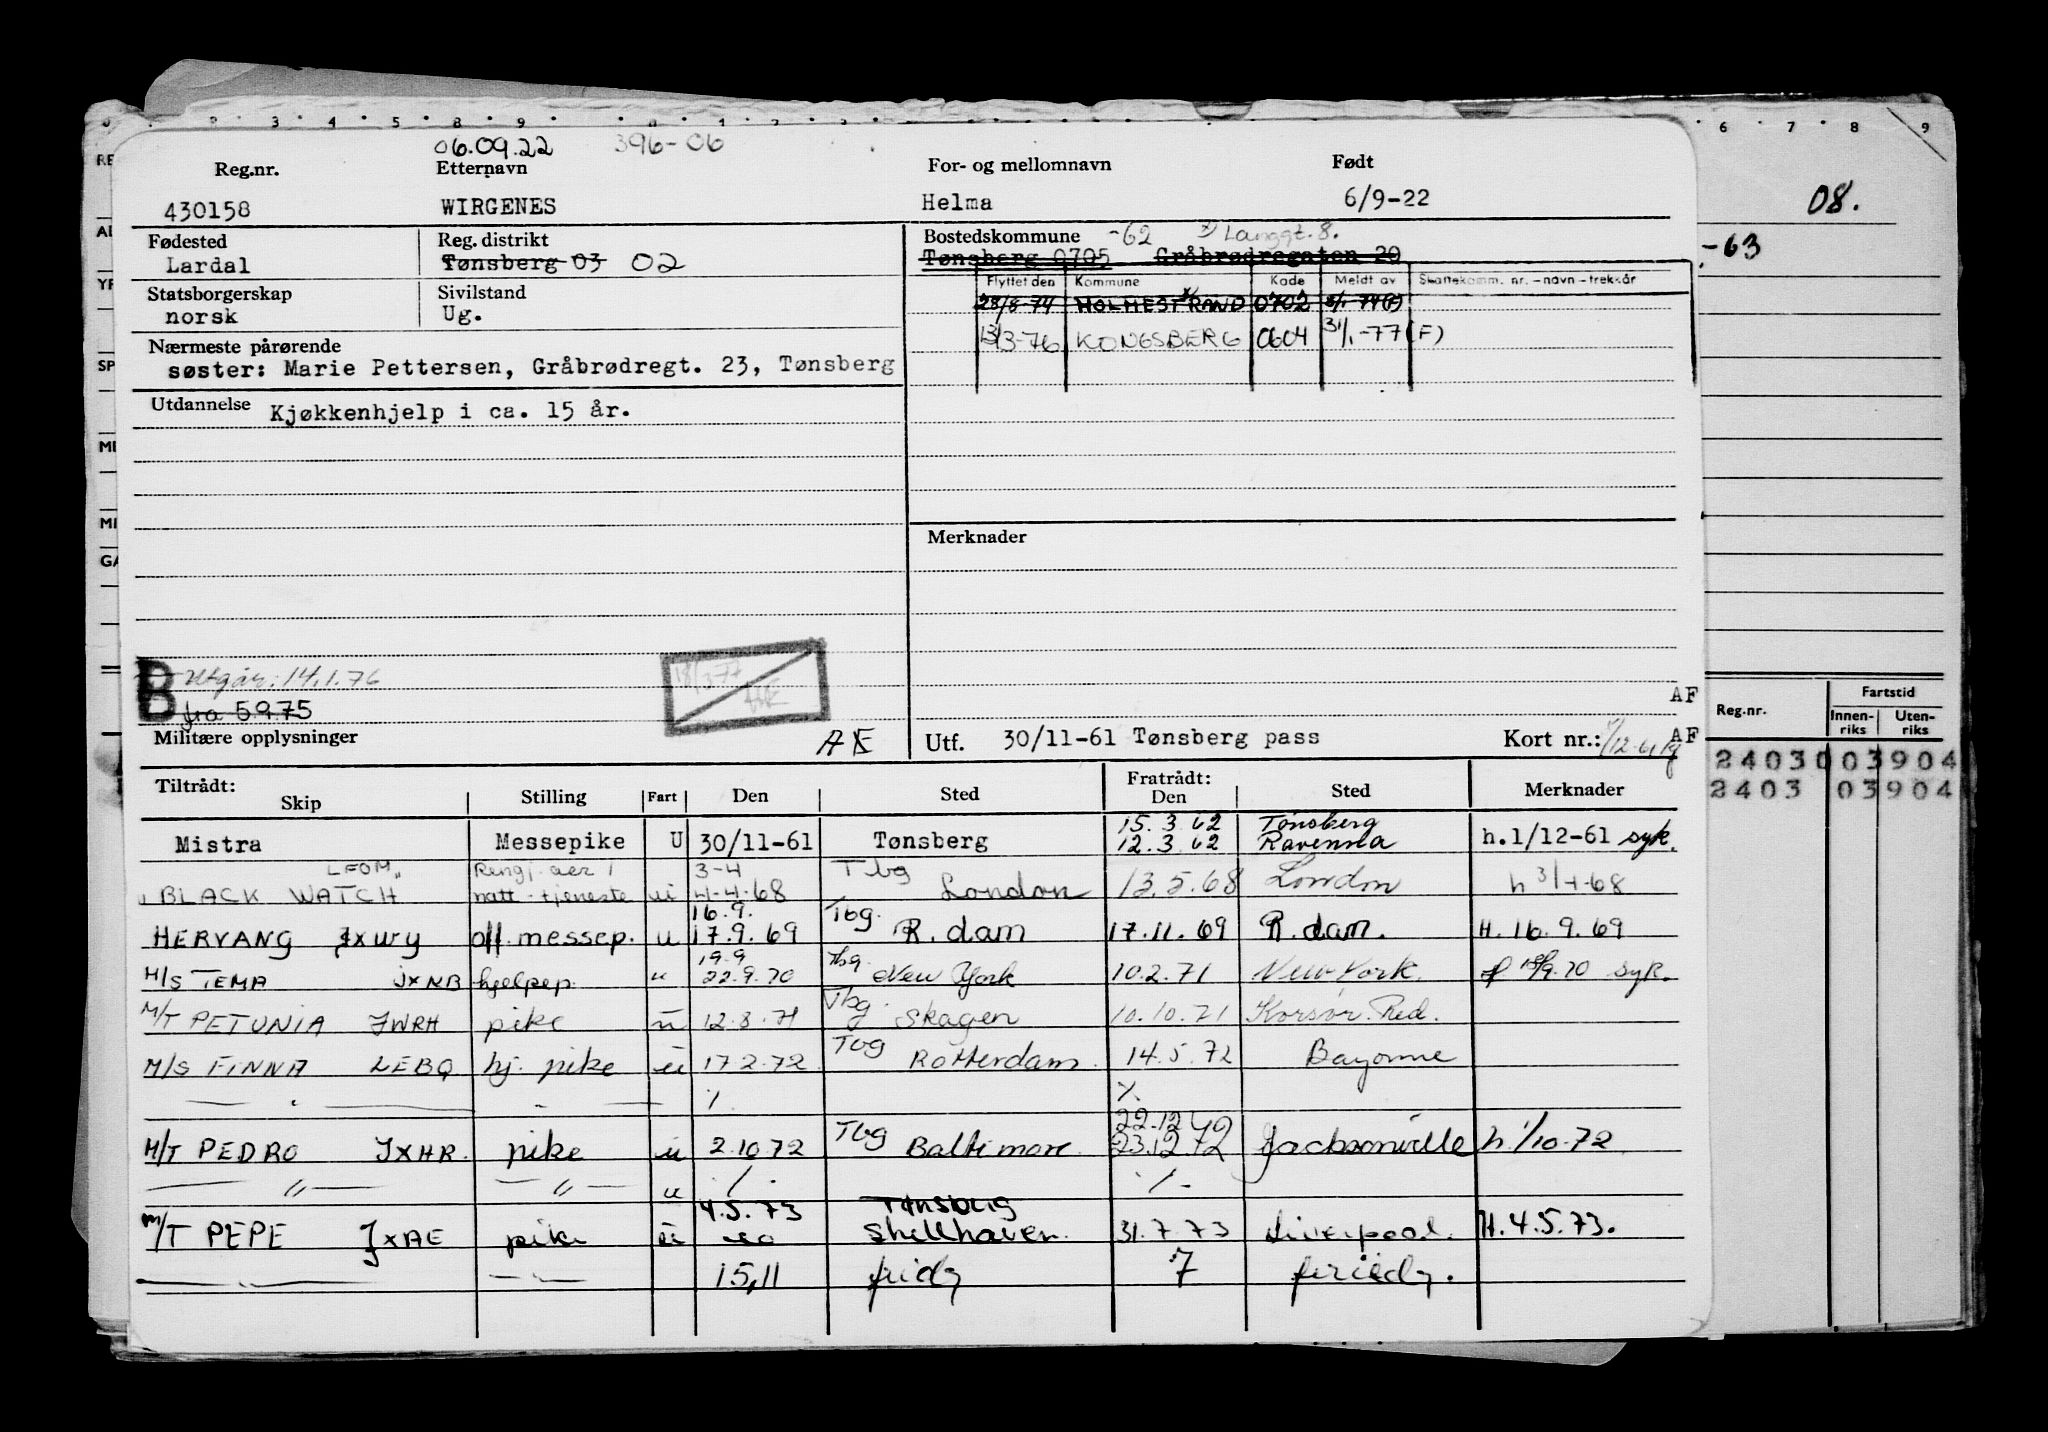 06.09.22 396-06
Reg.nr. Etternavn For- og mellomnavn Født
430158 WIRGENES Helma 6/9-22
Fødested Reg. distrikt Bostedskommune -62 x) Langgt. 8.
Lardal Tønsberg 03 02 Tønsberg 0705 Gråbrødregaten 20
Flyttet den Kommune Kode Meldt av Skattekomm. nr. - navn - trekkår
Statsborgerskap Sivilstand 28/8-74 HOLMESTRAND 0702
norsk Ug.
13/3-76 KONGSBERG 0604 31/1-77 (F)
Nærmeste pårørende
søster: Marie Pettersen, Gråbrødregt. 23, Tønsberg
Utdannelse Kjøkkenhjelp i ca. 15 år.
Merknader
B Utgår: 14.1.76
fra 5.9.75
18/3-77
AF
Militære opplysninger AE Utf. 30/11-61 Tønsberg pass Kort nr.: AF
Tiltrådt: Fratrådt:
Skip Stilling Fart Den Sted Den Sted Merknader
15.3.62 Tønsberg
Mistra Messepike U 30/11-61 Tønsberg 12.3.62 Ravenna h.1/12-61 syk.
LFOM Rengj. 3-4 Tbg
BLACK WATCH natt-tjeneste ui 4-4-68 London 13.5.68 London h 3/4-68
16.9. Tbg.
HERVANG JXWY off. messep. u 17.9.69 R.dam 17.11.69 R.dam. H. 16.9.69
19.9 Tbg
M/S TEMA JXNB hjelpep. u 22.9.70 New York 10.2.71 New York. 18/9.70 syk.
Tbg.
M/T PETUNIA JWRH pike u 12.8.71 Skagen 10.10.71 Korsør. Red.
Tbg
M/S FINNA LEBQ hj. pike u 17.2.72 Rotterdam. 14.5.72 Bayonne
— " — — " — ./. ./.
Tbg 22.12.72
M/T PEDRO JXHR. pike u 2.10.72 Baltimore 23.12.72 Jacksonville h. 1/10-72
— " — — " — u ./. ./.
4.5.73 Tønsberg
M/T PEPE JXAE pike u Shellhaven. 31.7.73 Liverpool. H. 4.5.73.
— " — — " — 15,11 7
08.
-63
Reg.nr. Fartstid
Innen-riks Uten-riks
24030 03904
2403 03904